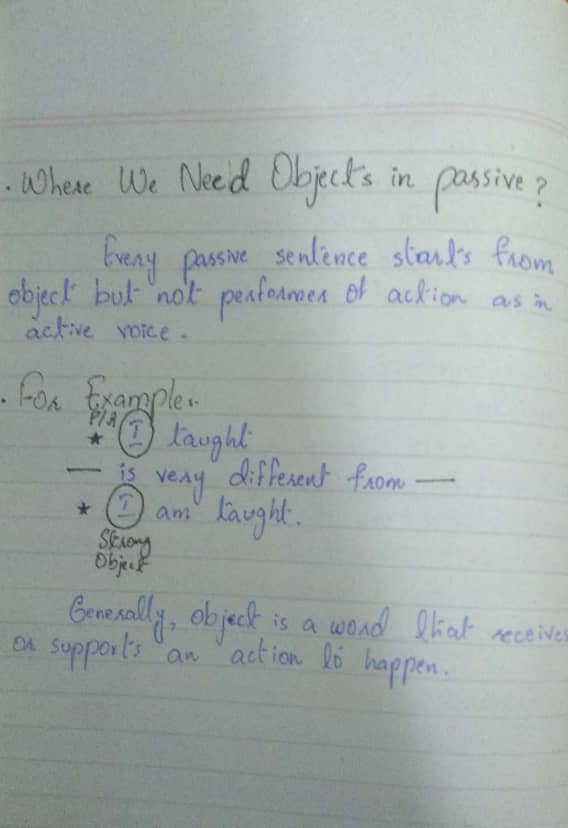 . Where We Need Objects in passive?
Every passive sentence starts from
object but not performer of action as in
active voice.
. For Example:
P/A
* I taught
— is very different from —
* I am taught.
Strong
Object
Generally, object is a word that receives
or supports an action to happen.